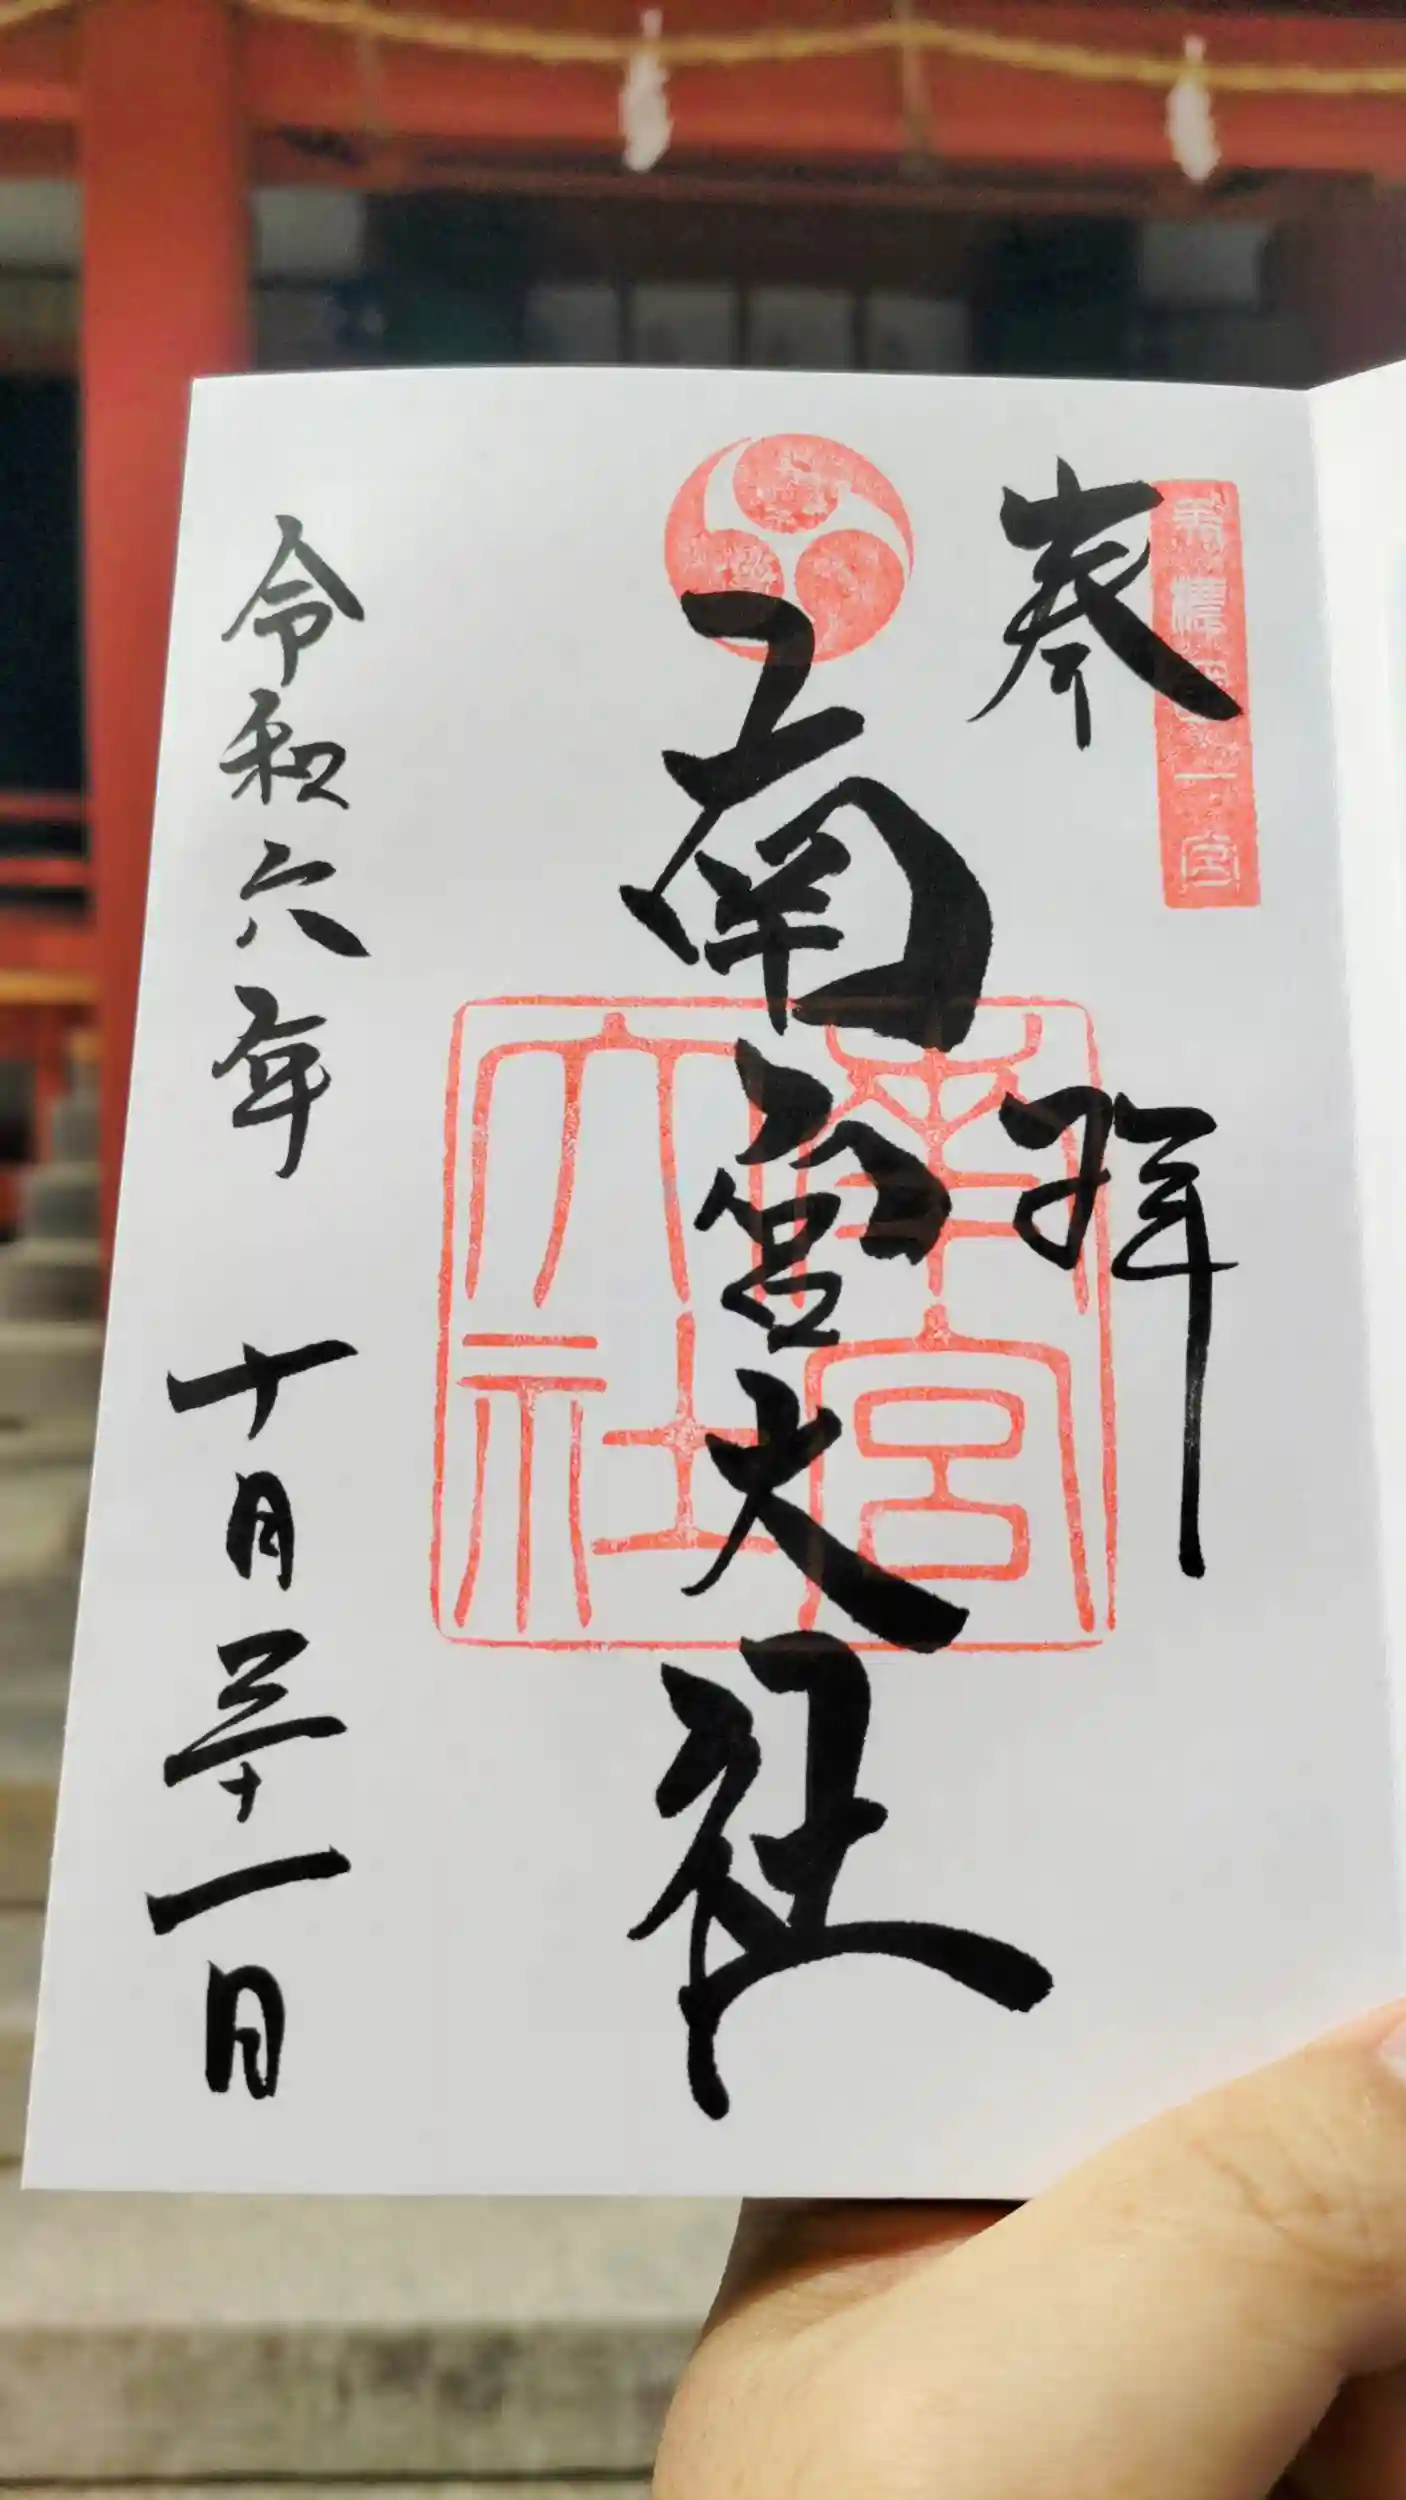 奉拝
美濃國一宮
南宮大社
南宮
大社
令和六年十月三十一日